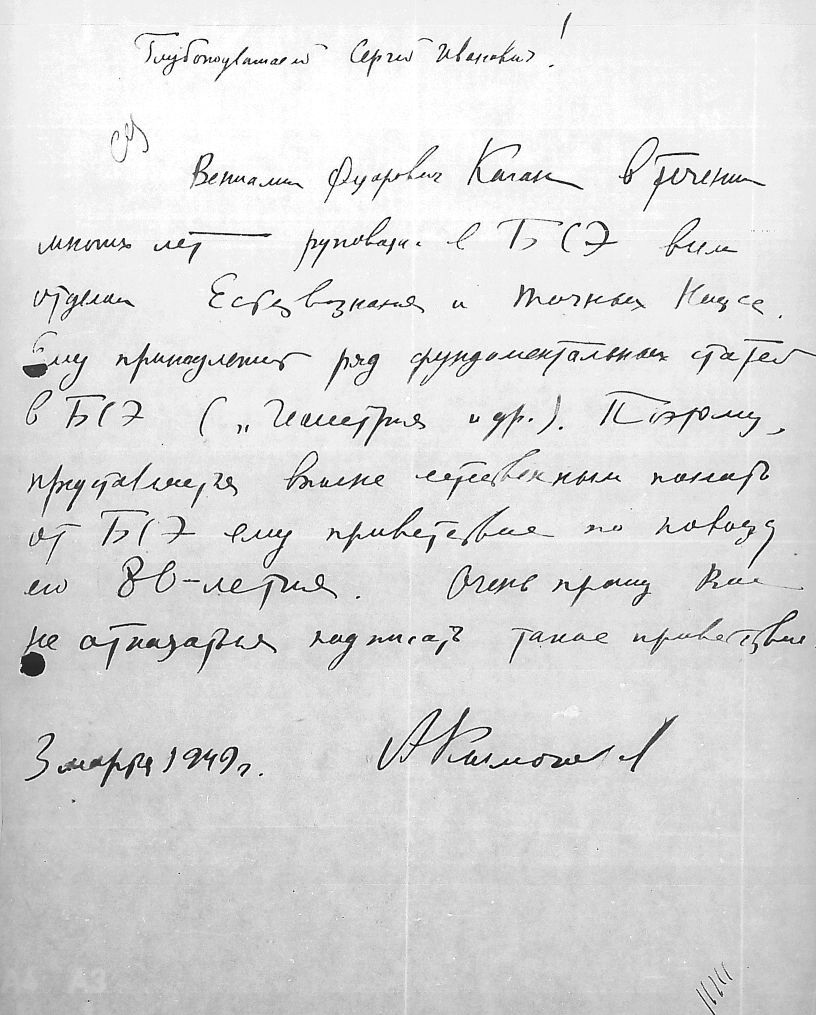 Глубокоуважаемый Сергей Иванович!
Вениамин Фёдорович Каган в течении
многих лет руководил в БСЭ всем
отделом Естествознания и точных Наук.
Ему принадлежит ряд фундаментальных статей
в БСЭ („Геометрия" и др.). Поэтому,
представляется вполне естественным послать
от БСЭ ему приветствие по поводу
его 80-летия. Очень прошу Вас
не отказаться подписать такое приветствие.
3 марта 1949 г. А Колмогоров